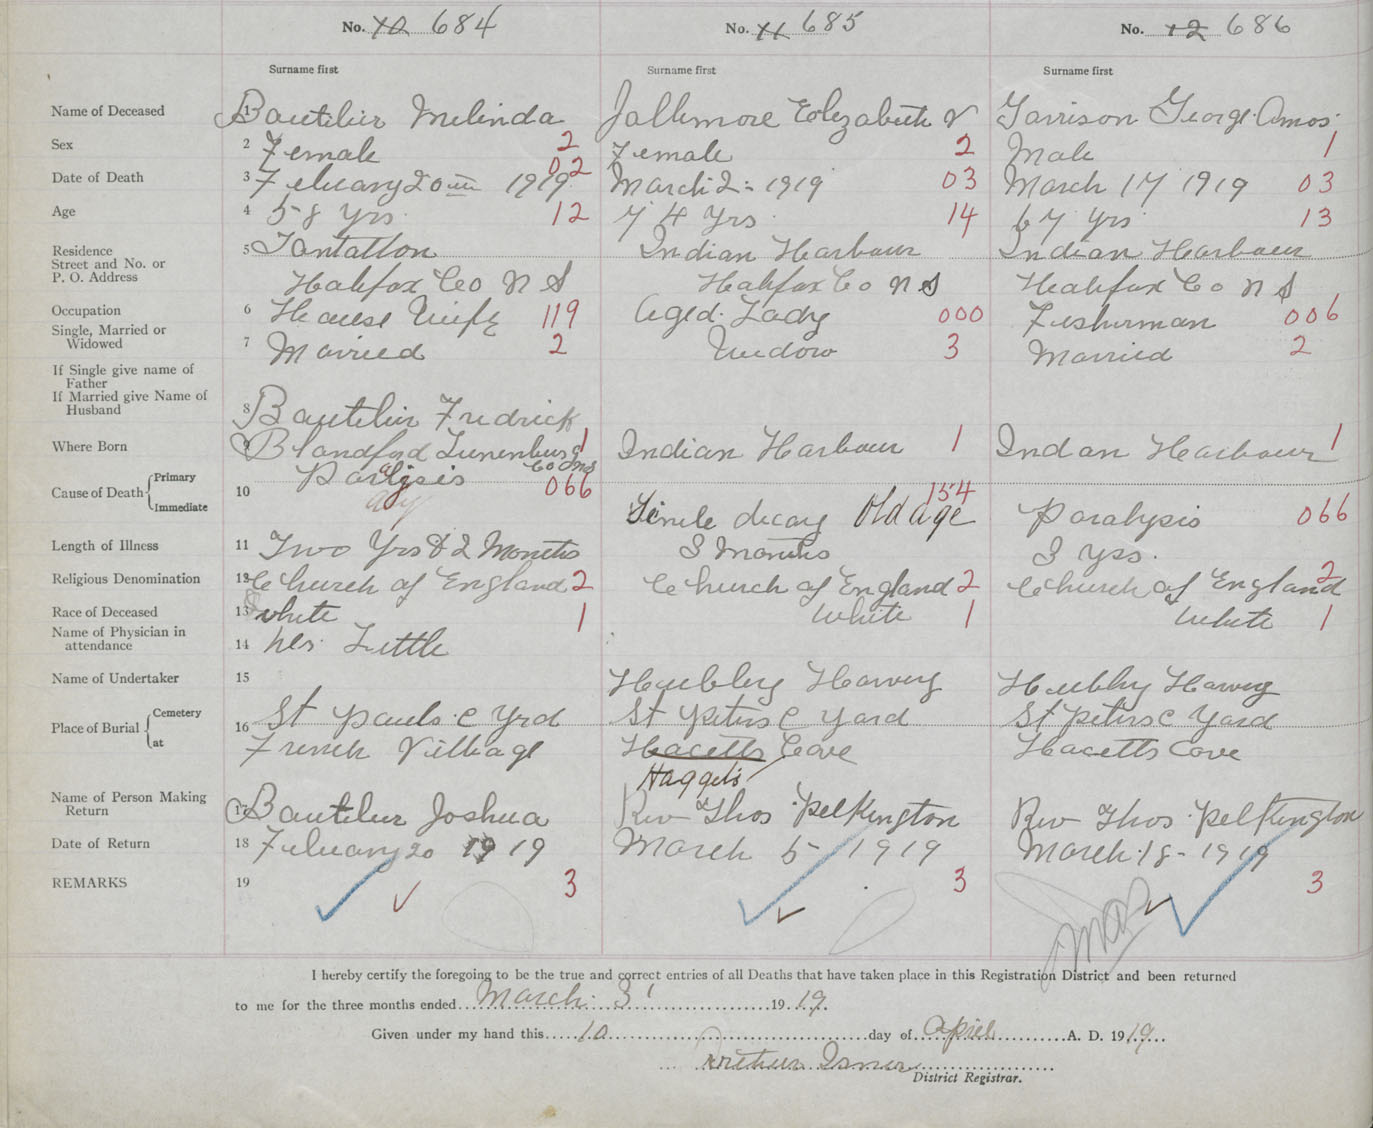 No. 10 684 No. 11 685 No. 12 686
Surname first Surname first Surname first
Name of Deceased 1 Bautilier Melinda Jollimore Elezabeth V Garrison George Amos
Sex 2 Female 2 Female 2 Male 1
Date of Death 3 February 20th 1919 02 March 2 - 1919 03 March 17 1919 03
Age 4 58 Yrs 12 74 Yrs 14 67 yrs 13
Residence 5 Tantallon Indian Harbour Indian Harbour
Street and No. or
P. O. Address Halifax Co N S Halifax Co N S Halifax Co N S
Occupation 6 House Wife 119 Aged Lady 000 Fisherman 006
Single, Married or
Widowed 7 Married 2 Widow 3 Married 2
If Single give name of
Father
If Married give Name of
Husband 8 Bautilier Fredrick
Where Born 9 Blandford Lunenburg 1 Indian Harbour 1 Indian Harbour 1
Co NS
Cause of Death Primary 10 Paralysis 066 154
Immediate Senile decay Old age Paralysis 066
Length of Illness 11 Two Yrs & 2 Months 3 Months 3 yrs.
Religious Denomination 12 Church of England 2 Church of England 2 Church of England 2
Race of Deceased 13 white 1 White 1 White 1
Name of Physician in
attendance 14 Little
Name of Undertaker 15 Haubley Harvey Haubley Harvey
Place of Burial Cemetery 16 St Pauls C Yrd St Peters C Yard St Peters C Yard
at French Village Hacetts Cove Hacetts Cove
Haggets
Name of Person Making
Return 17 Bautilier Joshua Rev Thos Pelkington Rev Thos Pelkington
Date of Return 18 February 20 1919 March 5 - 1919 March 18 - 1919
REMARKS 19 3 3 3
I hereby certify the foregoing to be the true and correct entries of all Deaths that have taken place in this Registration District and been returned
to me for the three months ended March 31 1919.
Given under my hand this 10 day of April A. D. 1919
Arthur Isnor
District Registrar.